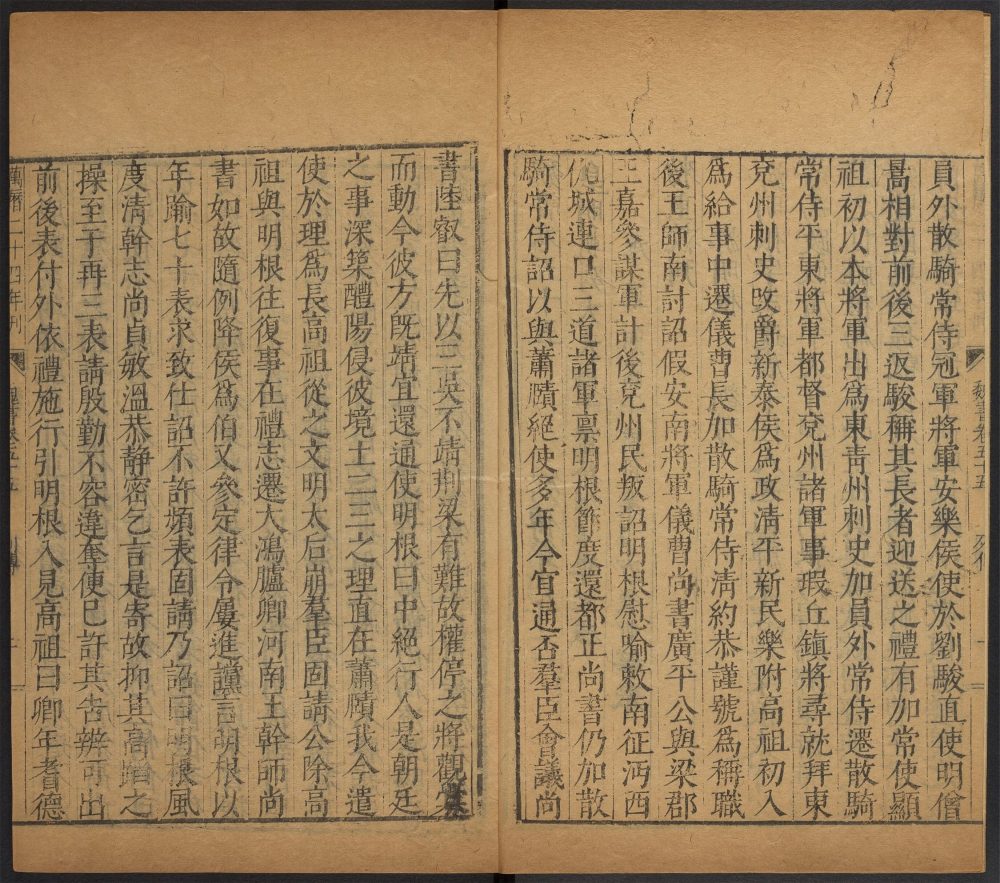 員外散騎常侍冠軍將軍安樂侯使於劉駿直使明僧
暠相對前後三返駿稱其長者迎送之禮有加常使顯
祖初以本將軍出爲東青州刺史加員外常侍遷散騎
常侍平東將軍都督兗州諸軍事瑕丘鎮將尋就拜東
兗州刺史改爵新泰侯爲政清平新民樂附高祖初入
爲給事中遷儀曹長加散騎常侍清約恭謹號爲稱職
後王師南討詔假安南將軍儀曹尚書廣平公與梁郡
王嘉參謀軍計後兗州民叛詔明根慰喻敕南征沔西
仇城連口三道諸軍禀明根節度還都正尚書仍加散
騎常侍詔以與蕭賾絕使多年今宜通否羣臣會議尚
魏書卷五十五
書陸叡曰先以三吳不靖荆梁有難故權停之將觀釁
而動今彼方旣靖宜還通使明根曰中絕行人是朝廷
之事深築醴陽侵彼境土二三之理直在蕭賾我今遣
使於理爲長高祖從之文明太后崩羣臣固請公除高
祖與明根往復事在禮志遷大鴻臚卿河南王幹師尚
書如故隨例降侯爲伯又參定律令屢進讜言明根以
年踰七十表求致仕詔不許頻表固請乃詔曰明根風
度清幹志尚貞敏溫恭靜密乞言是寄故抑其高蹈之
操至于再三表請殷勤不容違奪便已許其告辨可出
前後表付外依禮施行引明根入見高祖曰卿年耆德
萬曆二十四年刊